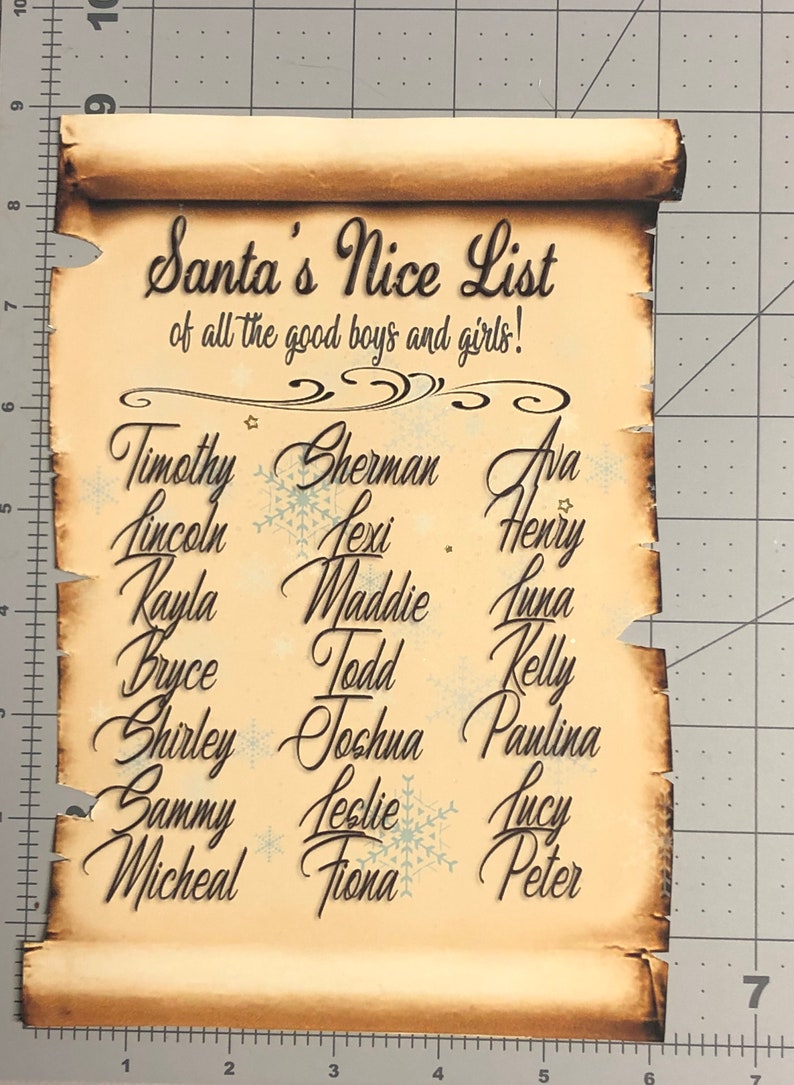 10
10
9
9
8
Santa's Nice List
7
of all the good boys and girls!
6
Timothy Sherman Ava
5
Lincoln Lexi Henry
Kayla Maddie Luna
4
Bryce Todd Kelly
3
Shirley Joshua Paulina
Sammy Leslie Lucy
1
Micheal Fiona Peter
7
1 2 3 4 5 6 7